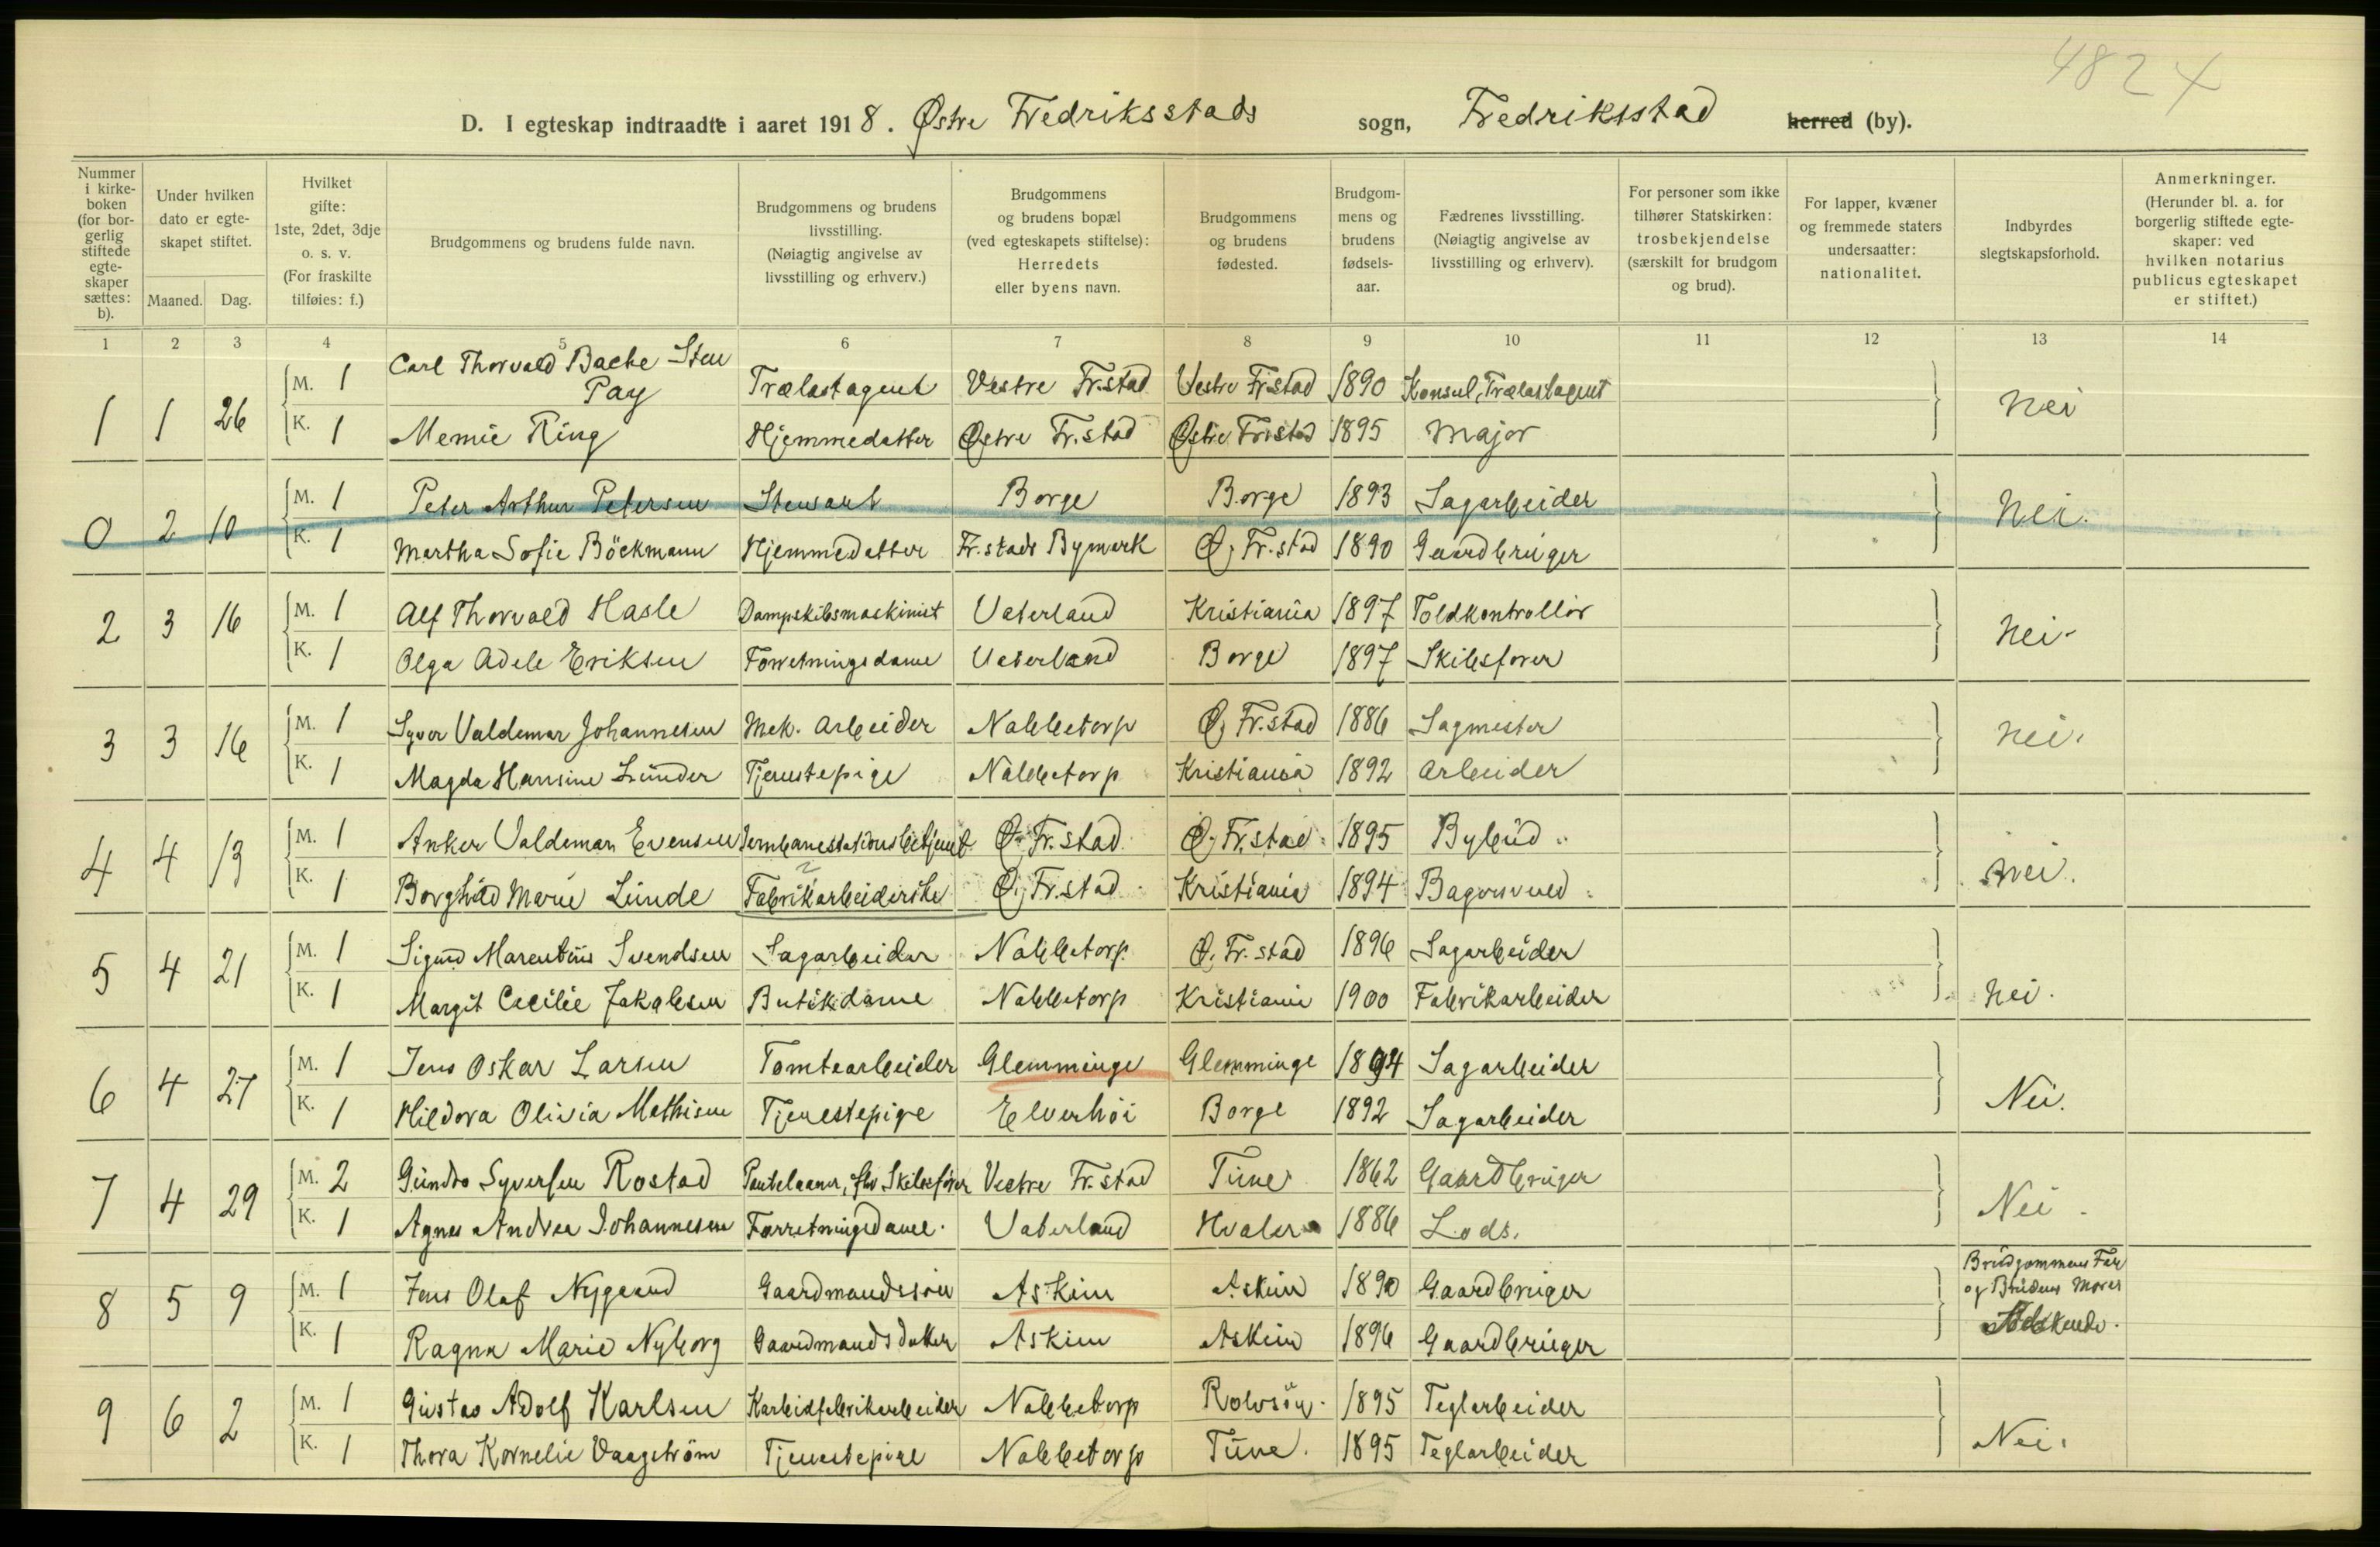 4824
D. I egteskap indtraadte i aaret 1918. Østre Fredriksstads sogn, Fredriksstad herred (by).
Nummer i kirke-boken (for bor-gerlig stiftede egte-skaper sættes: b).
Under hvilken dato er egte-skapet stiftet.
Maaned. Dag.
Hvilket gifte: 1ste, 2det, 3dje o. s. v. (For fraskilte tilføies: f.)
Brudgommens og brudens fulde navn.
Brudgommens og brudens livsstilling. (Nøiagtig angivelse av livsstilling og erhverv.)
Brudgommens og brudens bopæl (ved egteskapets stiftelse): Herredets eller byens navn.
Brudgommens og brudens fødested.
Brudgom-mens og brudens fødsels-aar.
Fædrenes livsstilling. (Nøiagtig angivelse av livsstilling og erhverv).
For personer som ikke tilhører Statskirken: trosbekjendelse (særskilt for brudgom og brud).
For lapper, kvæner og fremmede staters undersaatter: nationalitet.
Indbyrdes slegtskapsforhold.
Anmerkninger. (Herunder bl. a. for borgerlig stiftede egte-skaper: ved hvilken notarius publicus egteskapet er stiftet.)
1 2 3 4 5 6 7 8 9 10 11 12 13 14
1 1 26 M. 1 Carl Thorvald Backe Sten Pay Trælastagent Vestre Fr.stad Vestre Fr.stad 1890 Konsul, Trælastagent Nei
K. 1 Memie Ring Hjemmedatter Østre Fr.stad Østre Fr.stad 1895 Major
0 2 10 M. 1 Peter Arthur Petersen Stewart Borge Borge 1893 Sagarbeider Nei.
K. 1 Martha Sofie Böckmann Hjemmedatter Fr.stads Bymark Ø. Fr.stad 1890 Gaardbruger
2 3 16 M. 1 Alf Thorvald Hasle Dampskibsmaskinist Vaterland Kristiania 1897 Toldkontrollør Nei.
K. 1 Olga Adele Eriksen Forretningsdame Vaterland Borge 1897 Skibsfører
3 3 16 M. 1 Syver Valdemar Johannesen Mek. Arbeider Nabbetorp Ø. Fr.stad 1886 Sagmester Nei.
K. 1 Magda Hansine Lunder Tjenestepige Nabbetorp Kristiania 1892 Arbeider
4 4 13 M. 1 Anker Valdemar Evensen Jernbanestationsbetjent Ø. Fr.stad Ø. Fr.stad 1895 Bybud Nei.
K. 1 Borghild Marie Lunde Fabrikarbeiderske Ø. Fr.stad Kristiania 1894 Bagersvend
5 4 21 M. 1 Sigurd Marentius Svendsen Sagarbeider Nabbetorp Ø. Fr.stad 1896 Sagarbeider Nei.
K. 1 Margit Cecilie Jakobsen Butikdame Nabbetorp Kristiania 1900 Fabrikarbeider
6 4 27 M. 1 Jens Oskar Larsen Tomtearbeider Glemminge Glemminge 1894 Sagarbeider Nei.
K. 1 Hildora Olivia Mathisen Tjenestepige Elverhöi Borge 1892 Sagarbeider
7 4 29 M. 2 Gundro Syversen Rostad Pantelaaner, fhv Skibsfører Vestre Fr.stad Tune 1862 Gaardbruger Nei.
K. 1 Agnes Andrea Johannesen Forretningsdame. Vaterland Hvaler 1886 Lods.
8 5 9 M. 1 Jens Olaf Nygaard Gaardmandssøn Askim Askim 1890 Gaardbruger Brudgommens Far og Brudens Mor er Söskende.
K. 1 Ragna Marie Nyborg Gaardmandsdatter Askim Askim 1896 Gaardbruger
9 6 2 M. 1 Gustav Adolf Karlsen Karbidfabrikarbeider Nabbetorp Rolvsöy. 1895 Teglarbeider Nei.
K. 1 Thora Kornelie Vaagström Tjenestepige Nabbetorp Tune. 1895 Teglarbeider